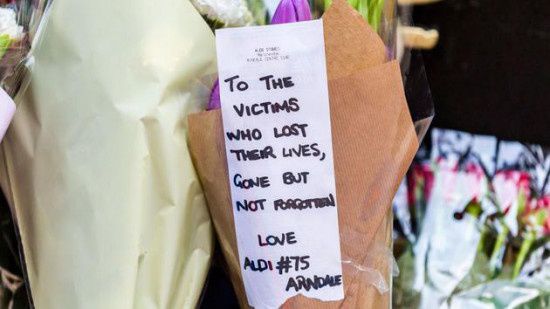 ALDI STORES
TO THE
VICTIMS
WHO LOST
THEIR LIVES,
GONE BUT
NOT FORGOTTEN
LOVE
ALDI #75
ARNDALE